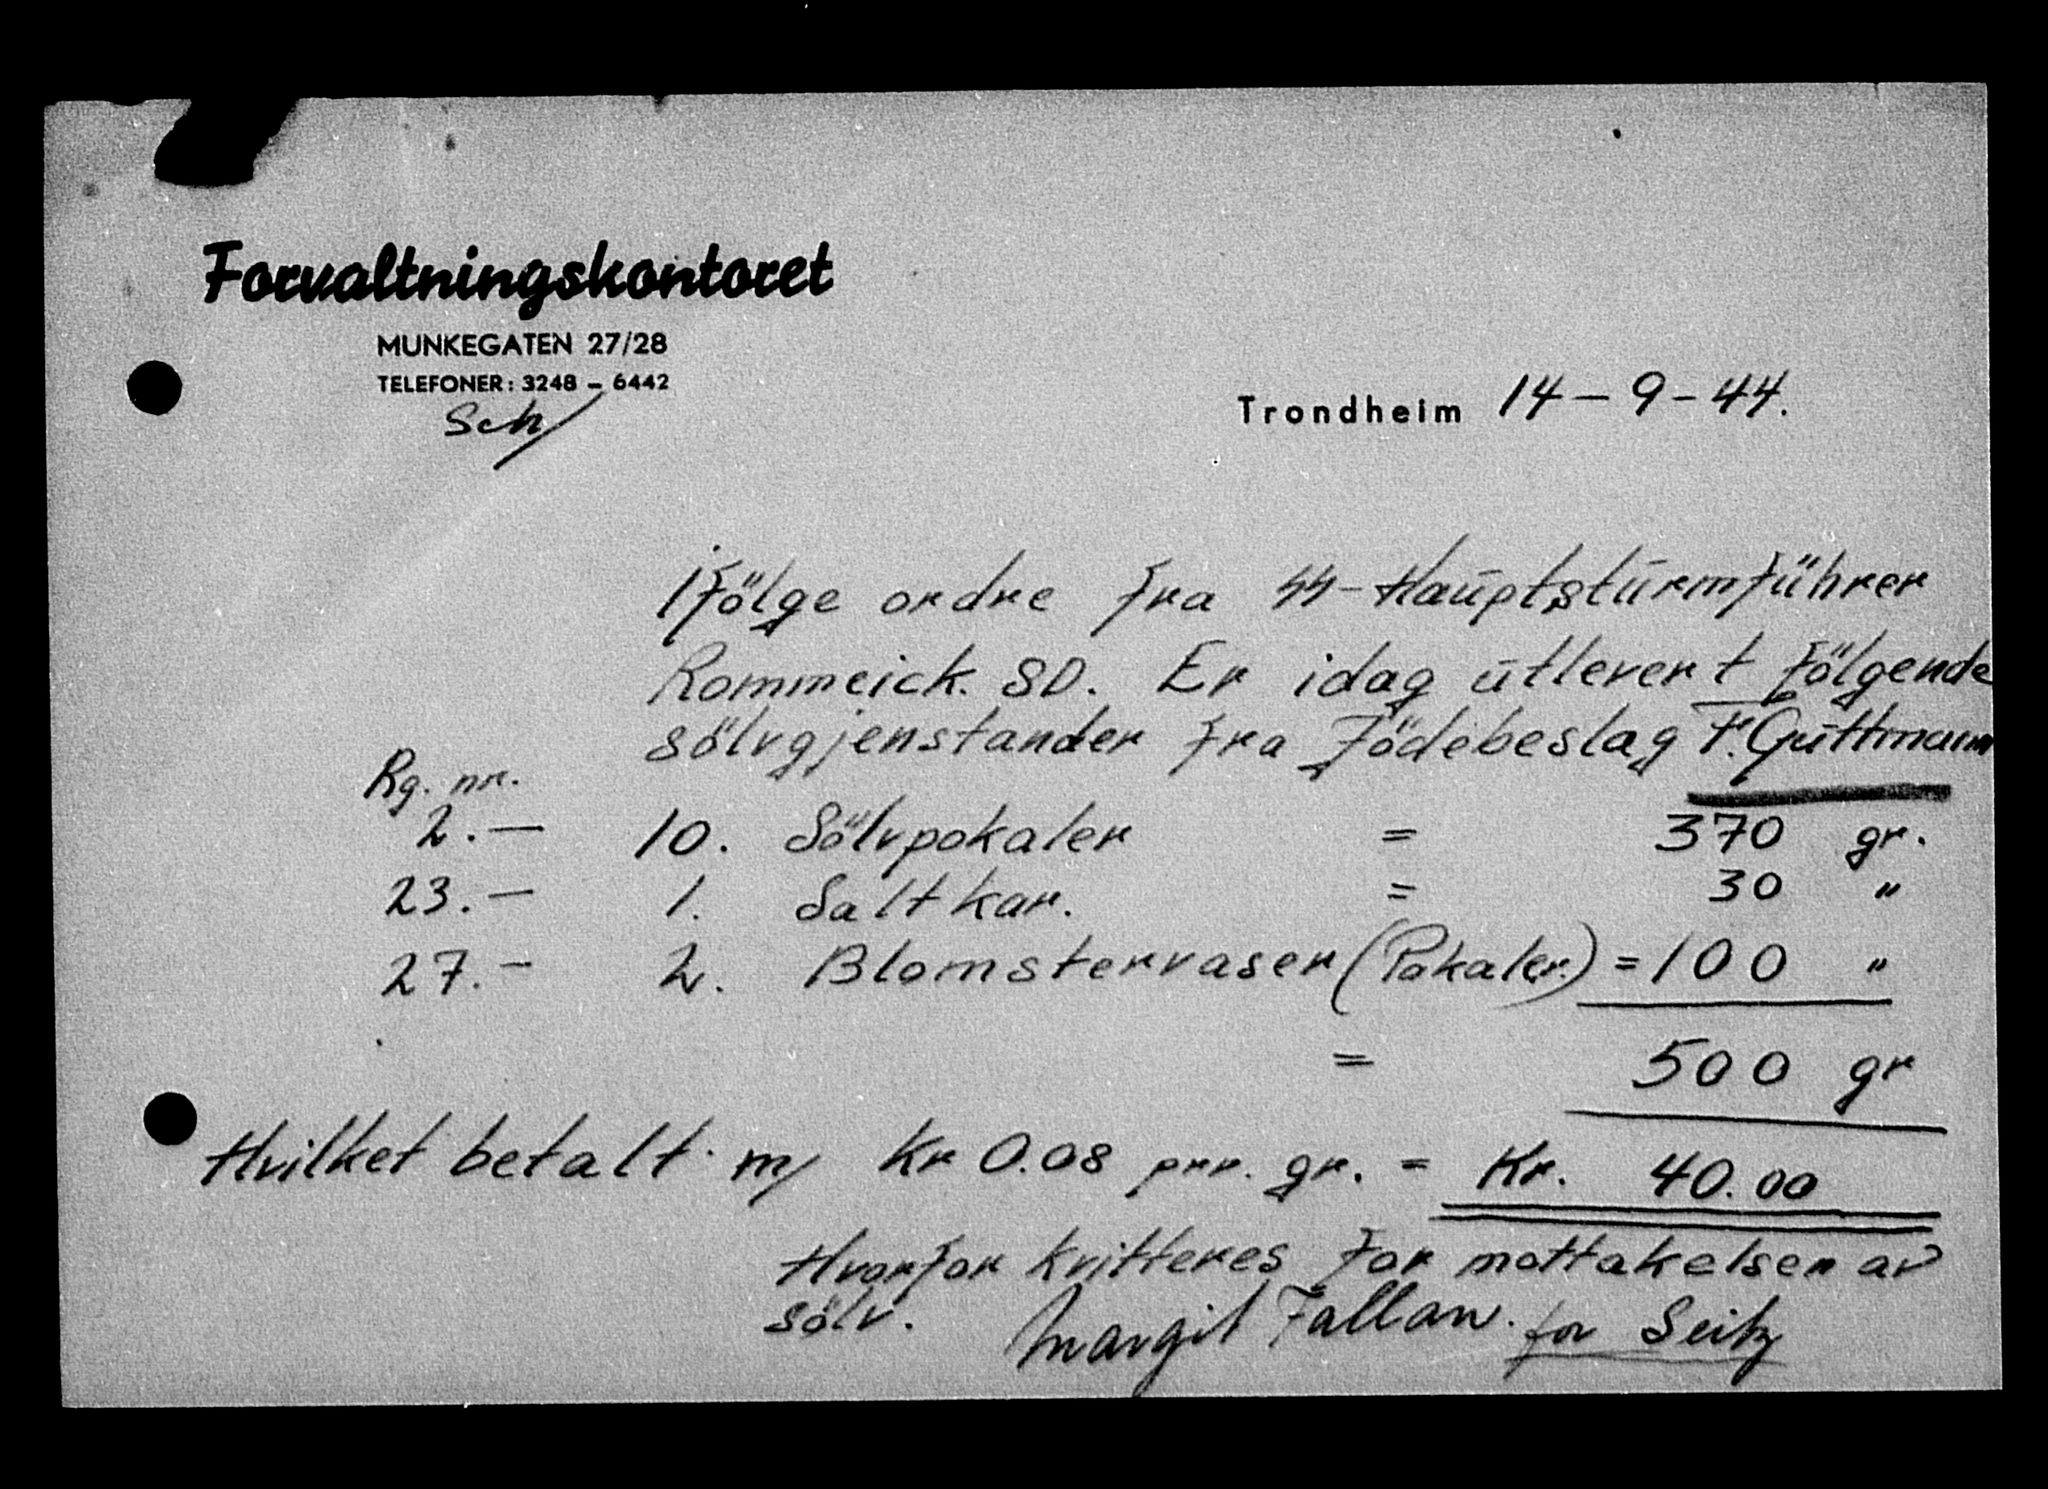 Forvaltningskontoret
MUNKEGATEN 27/28
TELEFONER: 3248 – 6442
Sch/
Trondheim 14 – 9 – 44.
Ifölge ordre fra SS-Haŭptstŭrmführer
Rommeick. SD. Er idag ŭtlevert fölgende
sölvgjenstander fra Jödebeslag F. Gŭttmann
Rg. nr.
2. — 10. Sölvpokaler = 370 gr.
23. — 1. Saltkar. = 30 "
27. — 2. Blomstervaser (Pokaler) = 100 "
= 500 gr
Hvilket betalt m/ Kr 0.08 prr. gr. = Kr. 40.00
Hvorfor kvitteres for mottakelsen av
sölv. Margit Fallan. for Seitz